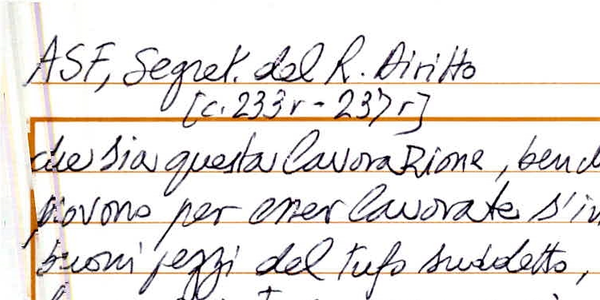 ASF, Segret. del R. Diritto
[c. 233r - 237r]
che sia questa lavorazione, ben
per esser lavorate s'in
buoni pezzi del tufo suddetto,